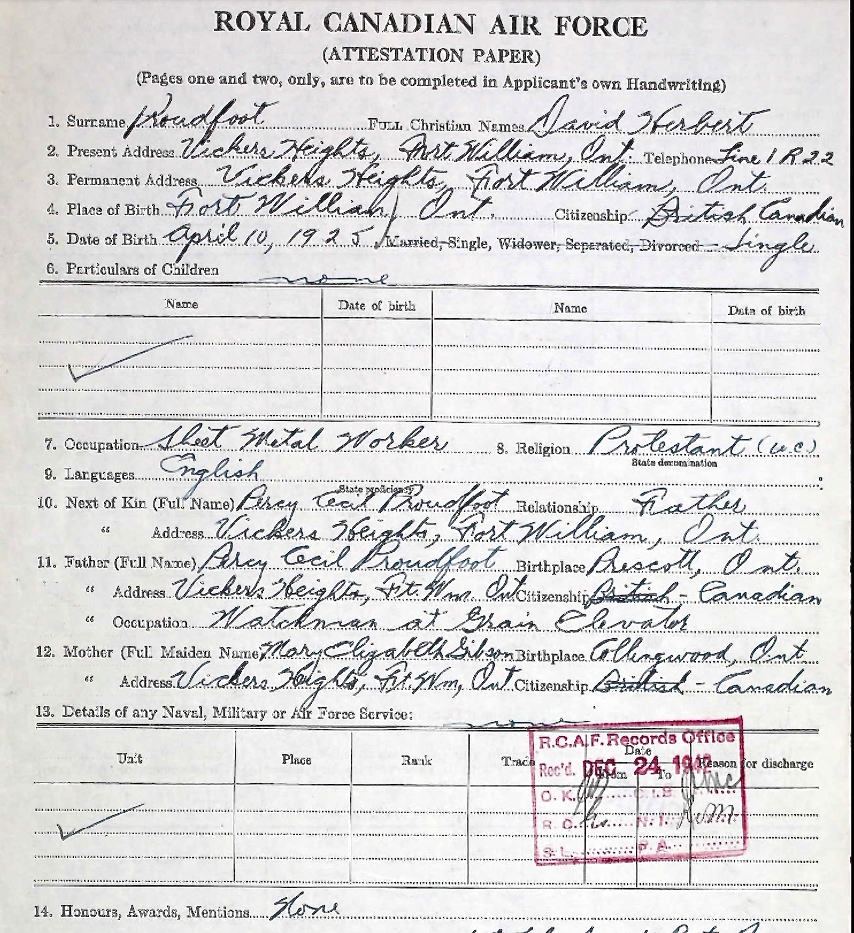 ROYAL CANADIAN AIR FORCE
(ATTESTATION PAPER)
(Pages one and two, only, are to be completed in Applicant's own Handwriting)
1. Surname Proudfoot FULL Christian Names David Herbert
2. Present Address Vickers Heights, Fort William, Ont. Telephone Line 1 R 22
3. Permanent Address Vickers Heights, Fort William, Ont.
4. Place of Birth Fort William, Ont. Citizenship British Canadian
5. Date of Birth April 10, 1925, Married, Single, Widower, Separated, Divorced - Single
6. Particulars of Children none
Name Date of birth Name Date of birth
7. Occupation Sheet Metal Worker 8. Religion Protestant (U.C.)
State denomination
9. Languages English
State proficiency
10. Next of Kin (Full Name) Percy Cecil Proudfoot Relationship Father
" Address Vickers Heights, Fort William, Ont.
11. Father (Full Name) Percy Cecil Proudfoot Birthplace Prescott, Ont.
" Address Vickers Heights, Ft. Wm. Ont Citizenship British - Canadian
" Occupation Watchman at Grain Elevator
12. Mother (Full Maiden Name) Mary Elizabeth Gibson Birthplace Collingwood, Ont
" Address Vickers Heights, Ft. Wm, Ont Citizenship British - Canadian
13. Details of any Naval, Military or Air Force Service: none
Unit Place Rank Trade Date From To Reason for discharge
R.C.A.F. Records Office
Rec'd. DEC 24
O.K. C.I.B
R.C. N.I.
S.L. P.A.
14. Honours, Awards, Mentions None